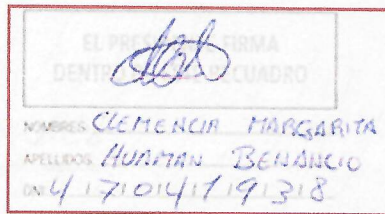 EL PRES FIRMA
DENTRO CUADRO
NOMBRES CLEMENCIA MARGARITA
APELLIDOS HUAMAN BENANCIO
DNI 41704719318